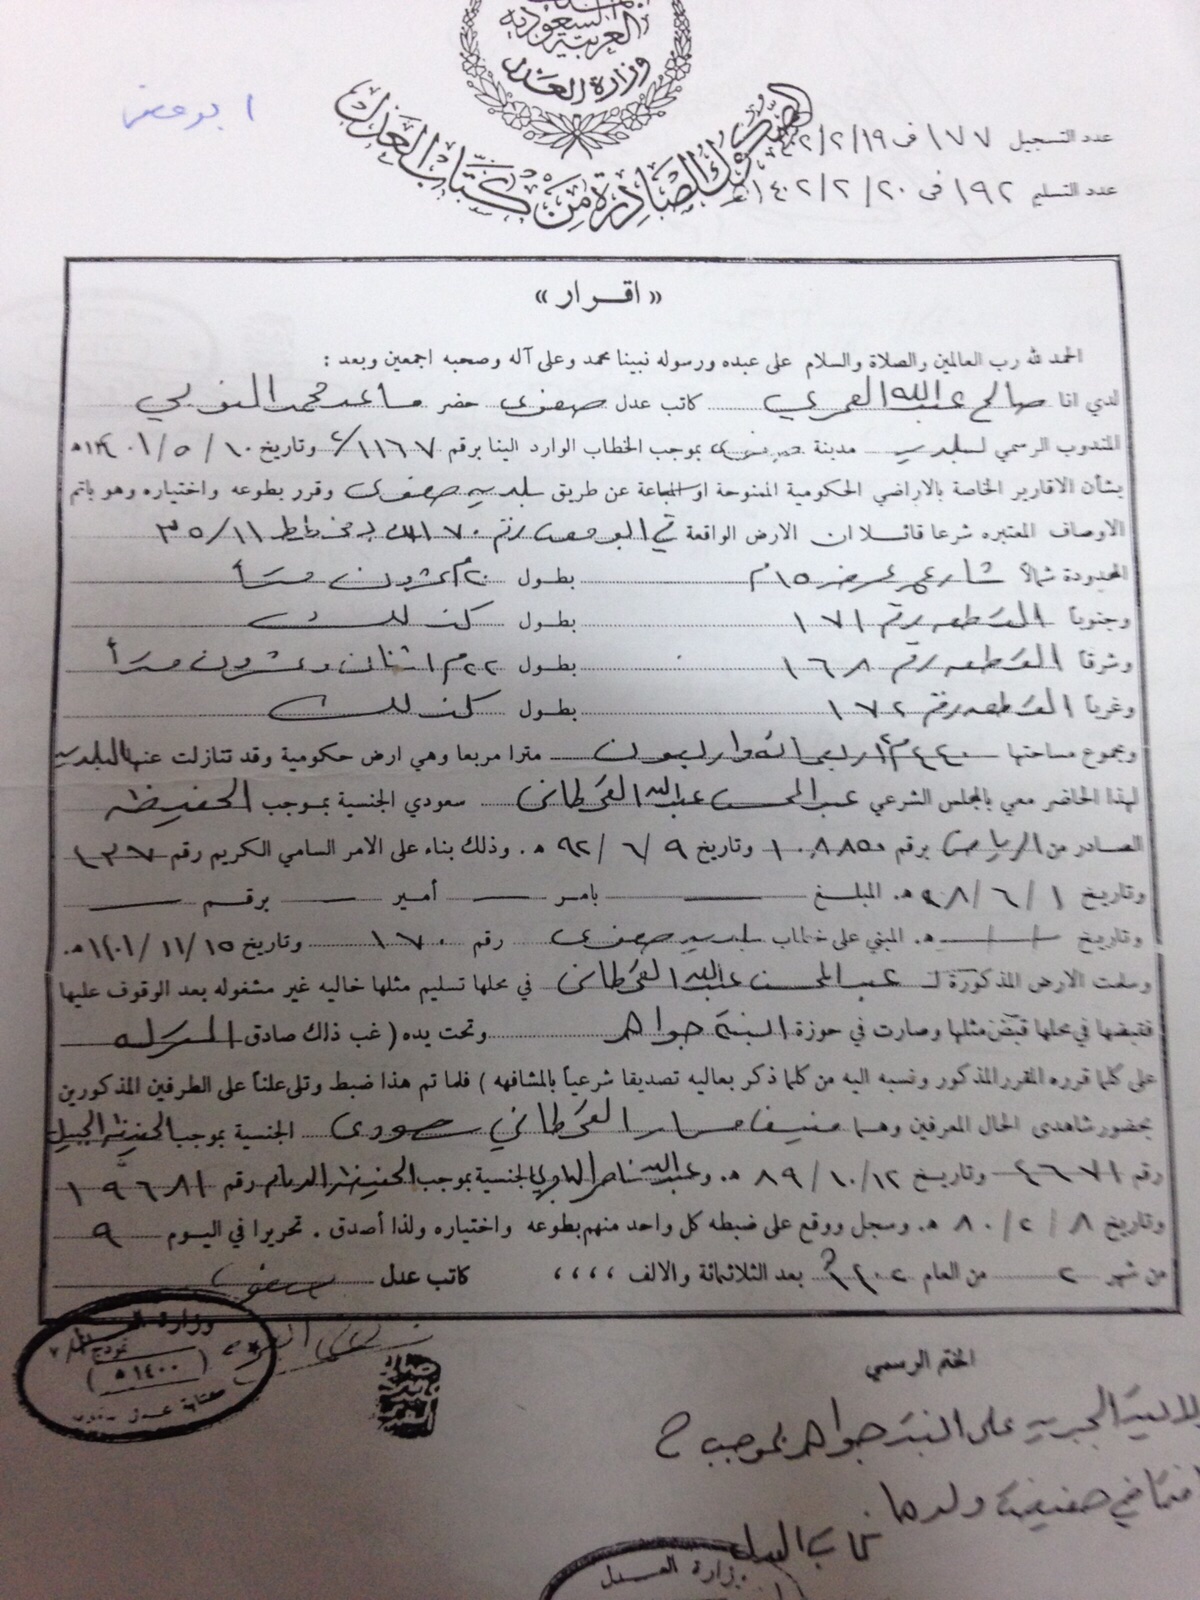 العربية السعودية
وزارة العدل
الصكوك الصادرة من كتاب العدل
عدد التسجيل ١٧٧ في ٤٠٢/٢/١٩
عدد التسليم ١٩٢ في ١٤٠٢/٢/٢٠هـ
« اقرار »
الحمد لله رب العالمين والصلاة والسلام على عبده ورسوله نبينا محمد وعلى آله وصحبه اجمعين وبعد :
لدي انا صالح عبدالله العمري كاتب عدل صفوى حضر ساعد محمد
المندوب الرسمي لبلدية مدينة صفوى بموجب الخطاب الوارد الينا برقم ١١٦٧ وتاريخ ١٠ / ٥ / ٤٠١هـ
بشأن الاقارير الخاصة بالاراضي الحكومية الممنوحة او المباعة عن طريق بلدية صفوى وقرر بطوعه واختياره وهو باتم
الاوصاف المعتبره شرعا قائلا ان الارض الواقعة في رقم ١٧٠ بمخطط ٣٥/١١
المحدودة شمالا شارع عرض ١٥م بطول ٢٠م عشرون مترا
وجنوبا القطعه رقم ١٧١ بطول كذلك
وشرقا القطعه رقم ١٦٨ بطول ٢٢م اثنان وعشرون مترا
وغربا القطعه رقم ١٧٢ بطول كذلك
ومجموع مساحتها ٤٤٠م٢ اربعمائة واربعون مترا مربعا وهي ارض حكومية وقد تنازلت عنها البلدية
لهذا الحاضر معي بالمجلس الشرعي عبدالمحسن عبدالله القحطاني سعودي الجنسية بموجب الحفيظة
الصادر من الرياض برقم ١٠٨٨٥٠ وتاريخ ٩ / ٦ / ٩٢ هـ . وذلك بناء على الامر السامي الكريم رقم
وتاريخ ١ / ٦ / ٩٨ هـ. المبلغ بامر أمير برقم
وتاريخ هـ. المبني على خطاب بلدية صفوى رقم ١٧٠ وتاريخ ١٥ / ١١ / ١٤٠١هـ.
وسلمت الارض المذكورة لـ عبدالمحسن عبدالله القحطاني في محلها تسليم مثلها خاليه غير مشغوله بعد الوقوف عليها
فقبضها في محلها قبض مثلها وصارت في حوزة البنت جواهر وتحت يده ( غب ذلك صادق
على كلما قرره المقرر المذكور ونسبه اليه من كلما ذكر بعاليه تصديقا شرعياً بالمشافهه ) فلما تم هذا ضبط وتلي علناً على الطرفين المذكورين
بحضور شاهدي الحال المعرفين وهما القحطاني سعودي الجنسية بموجب الحفيظة الجبيل
رقم ٤٦٧١ وتاريخ ١٢ / ١٠ / ٨٩ هـ. وعبدالله ناصر الجنسية بموجب الحفيظة الدمام رقم ١٩٦٨١
وتاريخ ٨ / ٢ / ٨٠ هـ. وسجل ووقع على ضبطه كل واحد منهم بطوعه واختياره ولذا أصدق . تحريرا في اليوم ٩
من شهر ٢ من العام ٤٠٢ بعد الثلاثمائة والالف ،،،، كاتب عدل صفوى
وزارة العدل
(٥١٤٠٠)
كتابة عدل
الختم الرسمي
الجبرية على البنت جواهر بموجب
في حفيظة والدها
كاتب العدل
وزارة العدل